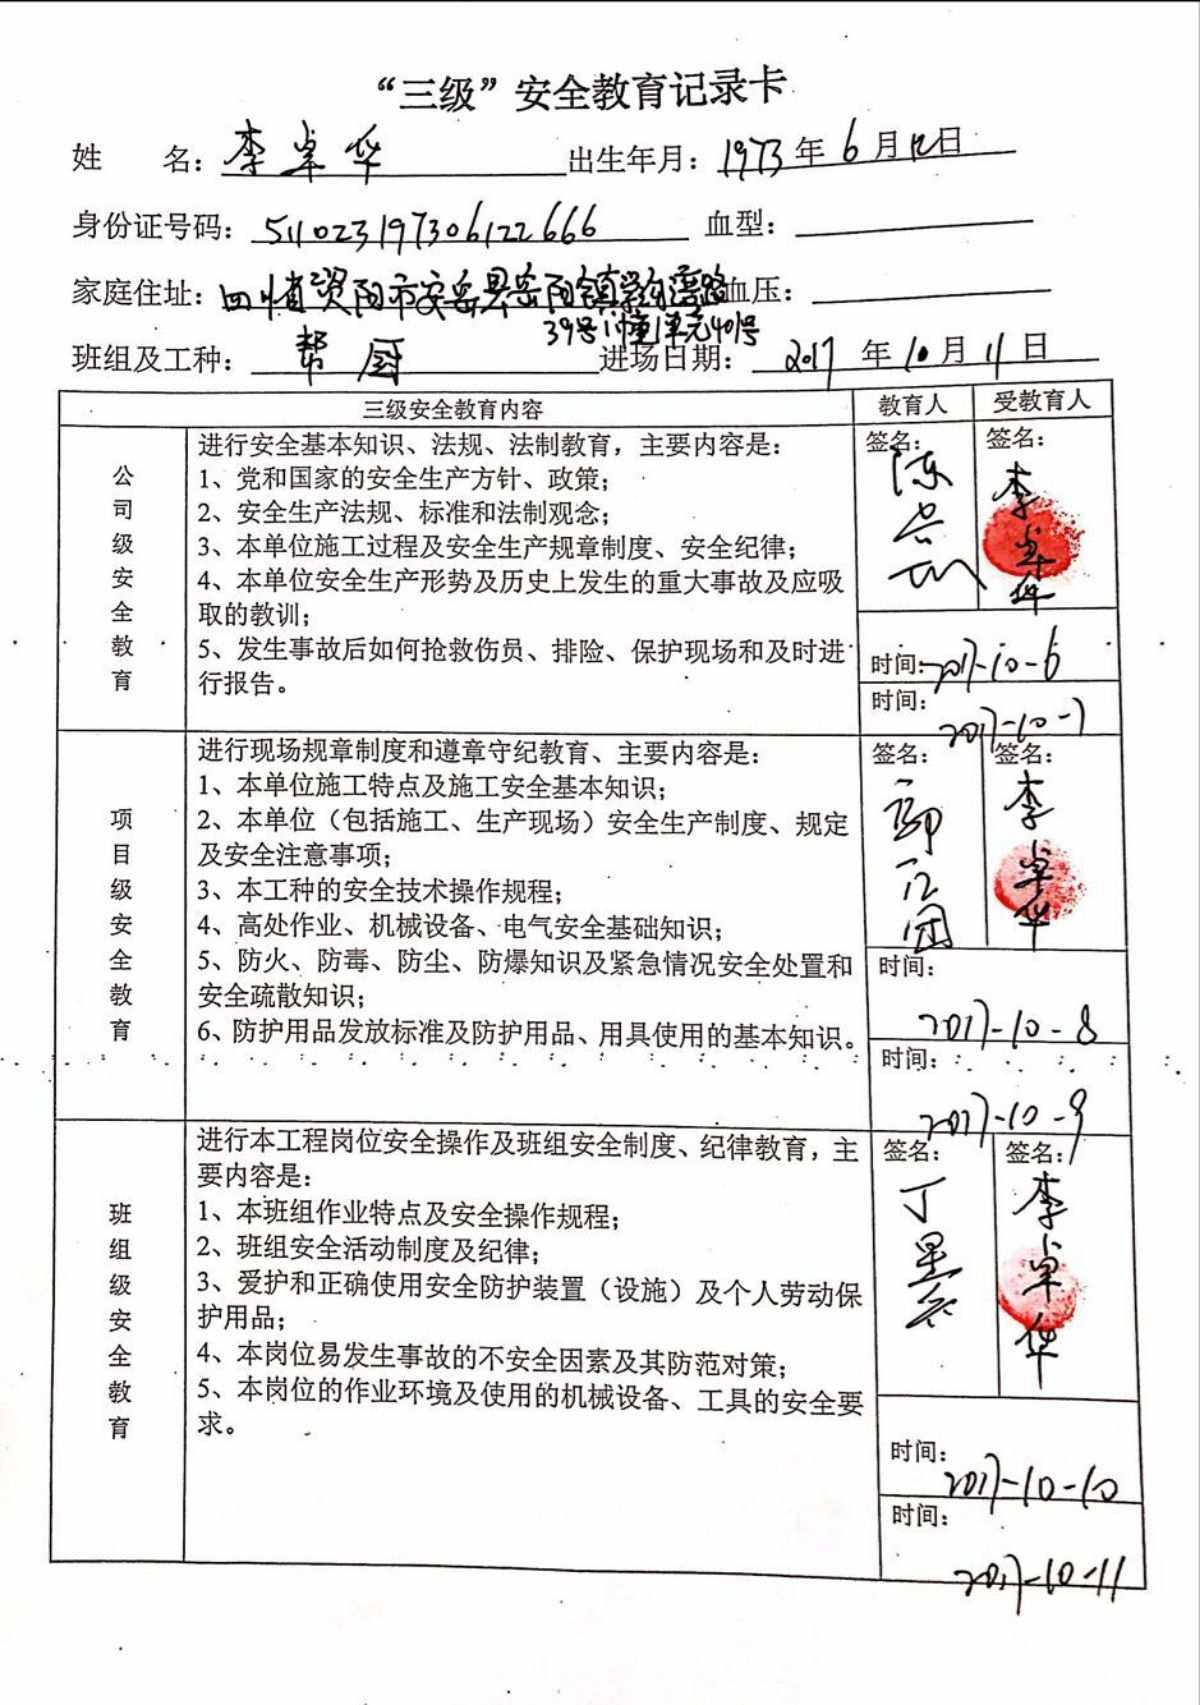 “三级”安全教育记录卡
姓 名：李卓华 出生年月：1973年6月12日
身份证号码：511023197306122666 血型：
家庭住址：四川省资阳市安岳县岳阳镇 血压：
39号1幢1单元401号
班组及工种：帮厨 进场日期：2017年10月11日
三级安全教育内容 教育人 受教育人
公司级安全教育
进行安全基本知识、法规、法制教育，主要内容是：
1、党和国家的安全生产方针、政策；
2、安全生产法规、标准和法制观念；
3、本单位施工过程及安全生产规章制度、安全纪律；
4、本单位安全生产形势及历史上发生的重大事故及应吸
取的教训；
5、发生事故后如何抢救伤员、排险、保护现场和及时进
行报告。
签名：陈
签名：李卓华
时间：2017-10-6
时间：2017-10-7
项目级安全教育
进行现场规章制度和遵章守纪教育、主要内容是：
1、本单位施工特点及施工安全基本知识；
2、本单位（包括施工、生产现场）安全生产制度、规定
及安全注意事项；
3、本工种的安全技术操作规程；
4、高处作业、机械设备、电气安全基础知识；
5、防火、防毒、防尘、防爆知识及紧急情况安全处置和
安全疏散知识；
6、防护用品发放标准及防护用品、用具使用的基本知识。
签名：
签名：李卓华
时间：2017-10-8
时间：2017-10-9
班组级安全教育
进行本工程岗位安全操作及班组安全制度、纪律教育，主
要内容是：
1、本班组作业特点及安全操作规程；
2、班组安全活动制度及纪律；
3、爱护和正确使用安全防护装置（设施）及个人劳动保
护用品；
4、本岗位易发生事故的不安全因素及其防范对策；
5、本岗位的作业环境及使用的机械设备、工具的安全要
求。
签名：丁
签名：李卓华
时间：2017-10-10
时间：2017-10-11